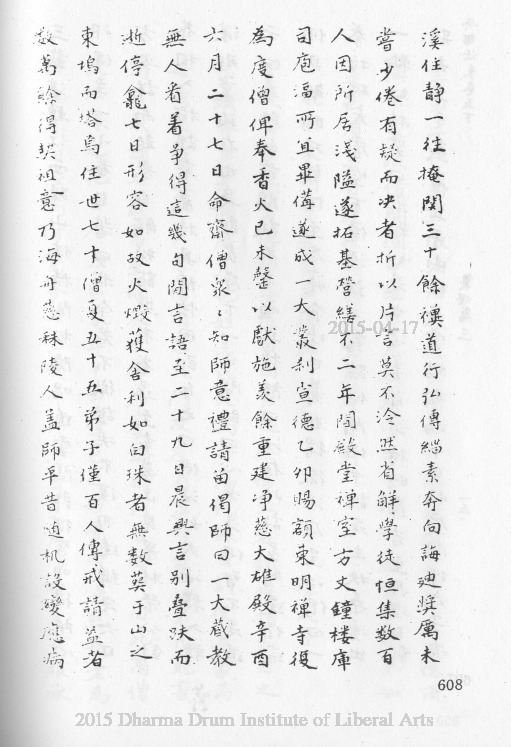 溪住靜一往掩關三十餘禩道行弘傳緇素奔向誨廸奬厲未
嘗少倦有疑而决者折以片言莫不冷然省解學徒恒集数百
人因所居淺隘遂拓基營繕不二年間殿堂禪室方丈鐘楼庫
司庖湢所宜畢備遂成一大叢刹宣德乙卯賜額東明禪寺復
為度僧俾奉香火己未罄以獻施羨餘重建净慈大雄殿辛酉
六月二十七日命齋僧衆〻知師意禮請畱偈師曰一大藏教
無人看着爭得這幾句閒言語至二十九日晨興言别疊趺而
逝停龕七日形容如故火燬獲舍利如白珠者無数塟于山之
東塢而塔焉住世七十僧夏五十五弟子僅百人傳戒請益者
数萬餘得契祖意乃海舟慈秣陵人盖師平昔随机設變應病
608
2015-04-17
2015 Dharma Drum Institute of Liberal Arts